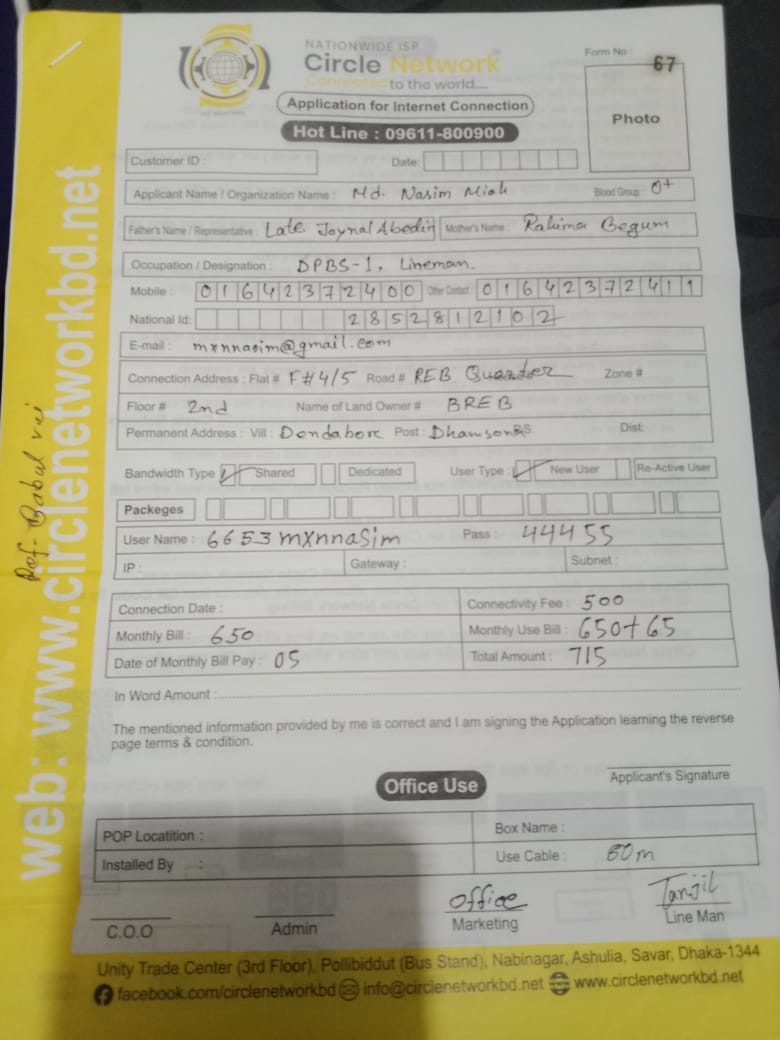 NATIONWIDE ISP
Circle Network
Connected to the world....
Form No : 67
Application for Internet Connection
Hot Line : 09611-800900
Photo
Customer ID :
Date:
Applicant Name / Organization Name : Md. Nasim Miah Blood Group: O+
Father's Name / Representative : Late. Joynal Abedin Mother's Name : Rahima Begum
Occupation / Designation : DPBS-1, Lineman.
Mobile : 01642372400 Other Contact: 01642372411
National Id: 2852812102
E-mail : mxnnasim@gmail.com
Connection Address : Flat # F#4/5 Road # REB Quarter Zone #
Floor # 2nd Name of Land Owner # BREB
Permanent Address : Vill : Dendabore Post : Dhamsona Dist:
Bandwidth Type Shared Dedicated User Type : New User Re-Active User
Packeges
User Name : 6653mxnnasim Pass : 44455
IP : Gateway : Subnet :
Connection Date : Connectivity Fee : 500
Monthly Bill : 650 Monthly Use Bill : 650+65
Date of Monthly Bill Pay : 05 Total Amount : 715
In Word Amount :
The mentioned information provided by me is correct and I am signing the Application learning the reverse
page terms & condition.
Applicant's Signature
Office Use
POP Locatition : Box Name :
Installed By : Use Cable : 60m
Office Tanjil
C.O.O Admin Marketing Line Man
Unity Trade Center (3rd Floor), Pollibiddut (Bus Stand), Nabinagar, Ashulia, Savar, Dhaka-1344
facebook.com/circlenetworkbd info@circlenetworkbd.net www.circlenetworkbd.net
web: www.circlenetworkbd.net
Ref- Babul vai